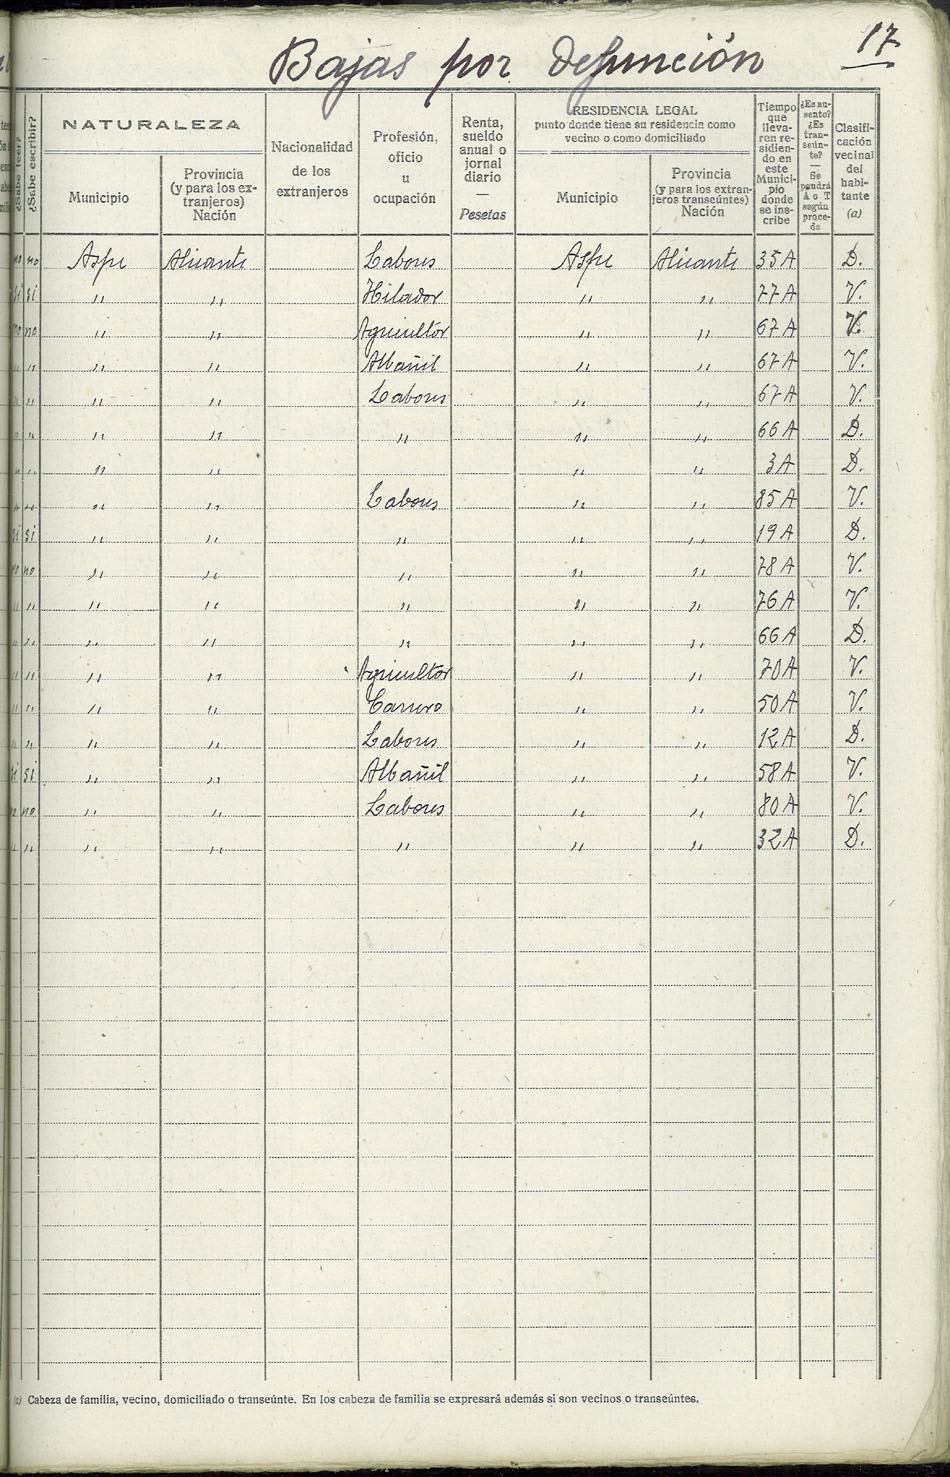 17
Bajas por defunción
¿Sabe leer?
¿Sabe escribir?
NATURALEZA
Municipio
Provincia
(y para los ex-
tranjeros)
Nación
Nacionalidad
de los
extranjeros
Profesión,
oficio
u
ocupación
Renta,
sueldo
anual o
jornal
diario
—
Pesetas
RESIDENCIA LEGAL
punto donde tiene su residencia como
vecino o como domiciliado
Municipio
Provincia
(y para los extran-
jeros transeúntes)
Nación
Tiempo
que
lleva-
ren re-
sidien-
do en
este
Munici-
pio
donde
se ins-
cribe
¿Es au-
sente?
¿Es
tran-
seún-
te?
—
Se
pondrá
A o T
según
proce-
da
Clasifi-
cación
vecinal
del
habi-
tante
(a)
no no Aspe Alicante Labores Aspe Alicante 35 A D.
si si " " Hilador " " 77 A V.
no no " " Agricultor " " 67 A V.
" " " " Albañil " " 67 A V.
" " " " Labores " " 67 A V.
" " " " " " " 66 A D.
" " " " " " 3 A D.
" " " " Labores " " 85 A V.
si si " " " " " 19 A D.
no no " " " " " 78 A V.
" " " " " " " 76 A V.
" " " " " " " 66 A D.
" " " " Agricultor " " 70 A V.
" " " " Carrero " " 50 A V.
" " " " Labores " " 12 A D.
si si " " Albañil " " 58 A V.
no no " " Labores " " 80 A V.
" " " " " " " 32 A D.
(a) Cabeza de familia, vecino, domiciliado o transeúnte. En los cabeza de familia se expresará además si son vecinos o transeúntes.